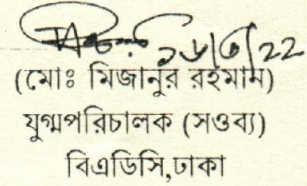 ১৬/৫/২২
(মোঃ মিজানুর রহমান)
যুগ্মপরিচালক (সওব্য)
বিএডিসি,ঢাকা